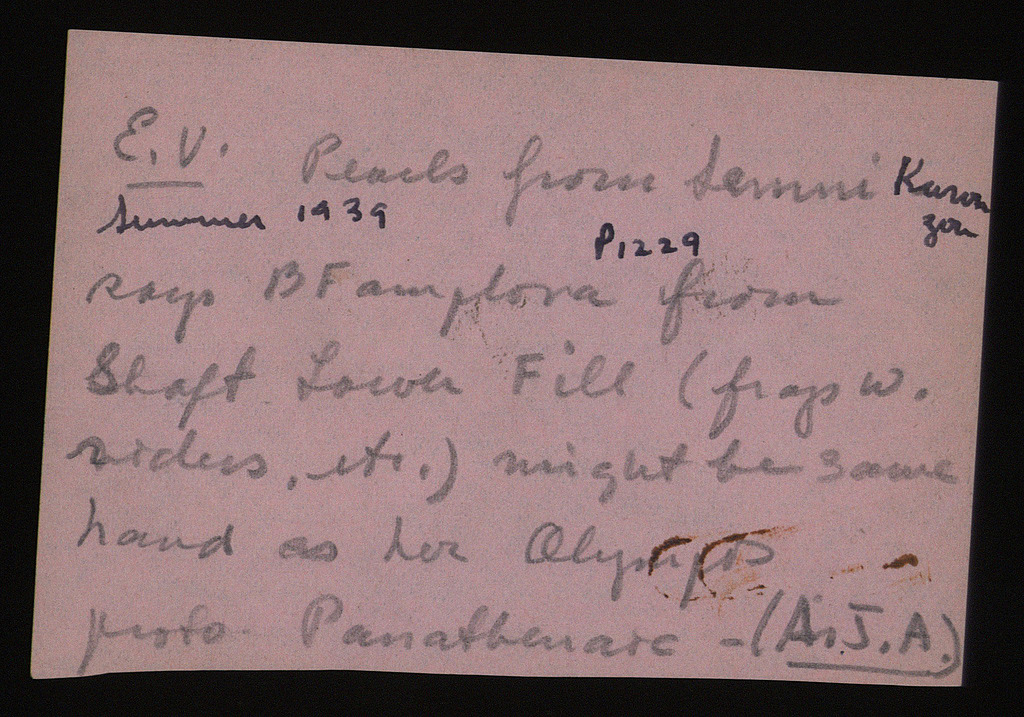 E.V. Pearls from Semni Karou
zou
Summer 1939
P1229
says BF amphora from
Shaft Lower Fill (frags w.
riders, etc.) might be same
hand as her Olympos
proto-Panathenaic - (A.J.A.)